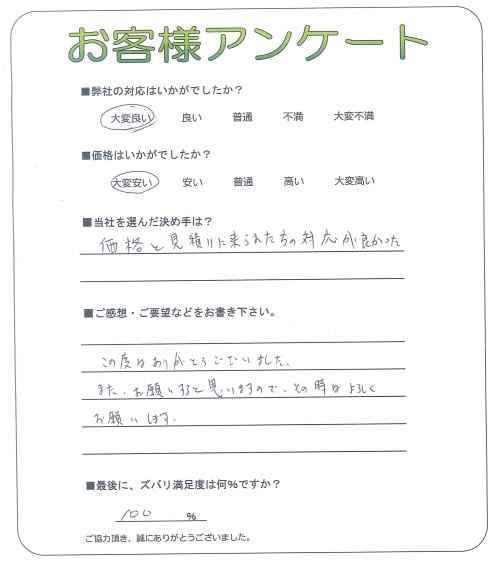 お客様アンケート
■弊社の対応はいかがでしたか？
大変良い 良い 普通 不満 大変不満
■価格はいかがでしたか？
大変安い 安い 普通 高い 大変高い
■当社を選んだ決め手は？
価格と見積りに来られた方の対応が良かった
■ご感想・ご要望などをお書き下さい。
この度はありがとうございました。
また、お願いすると思いますので、その時はよろしく
お願いします。
■最後に、ズバリ満足度は何%ですか？
100 %
ご協力頂き、誠にありがとうございました。